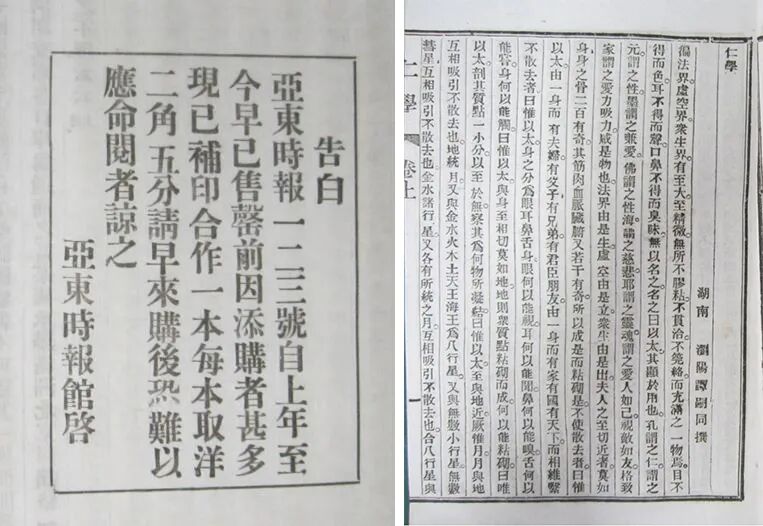 告白
亞東時報一二三號自上年至
今早已售罄前因添購者甚多
現已補印合作一本每本取洋
二角五分請早來購後恐難以
應命閱者諒之
亞東時報館啓
仁學
湖南 瀏陽譚嗣同撰
徧法界。虛空界。衆生界。有至大至精微。無所不膠粘。不貫洽。不筦絡。而充滿之一物焉。目不
得而色。耳不得而聲。口鼻不得而臭味。無以名之。名之曰以太。其顯於用也。孔謂之仁。謂之
元。謂之性。墨謂之兼愛。佛謂之性海。謂之慈悲。耶謂之靈魂。謂之愛人如己。視敵如友。格致
家謂之愛力吸力。咸是物也。法界由是生。虛空由是立。衆生由是出。夫人之至切近者莫如
身。身之骨二百有奇。其筋肉血脈臟腑又若干有奇。所以成是而粘砌是不使散去者。曰惟
以太。由一身而有夫婦。有父子。有兄弟。有君臣朋友。由一身而有家有國有天下。而相維繫
不散去者。曰惟以太。身之分爲眼耳鼻舌身。眼何以能視。耳何以能聞。鼻何以能嗅。舌何以
能嘗。身何以能觸。曰惟以太。與身至相切莫如地。地則衆質點粘砌而成。何以能粘砌。曰惟
以太。剖其質點一小分。以至於無。察其爲何物所凝結。曰惟以太。至與地近厥惟月。月與地
互相吸引不散去也。地統月。又與金水火木土天王海王爲八行星。又與無數小行星。無數
彗星。互相吸引不散去也。金水諸行星。又各有所統之月。互相吸引不散去也。合八行星與
仁學 卷上 一